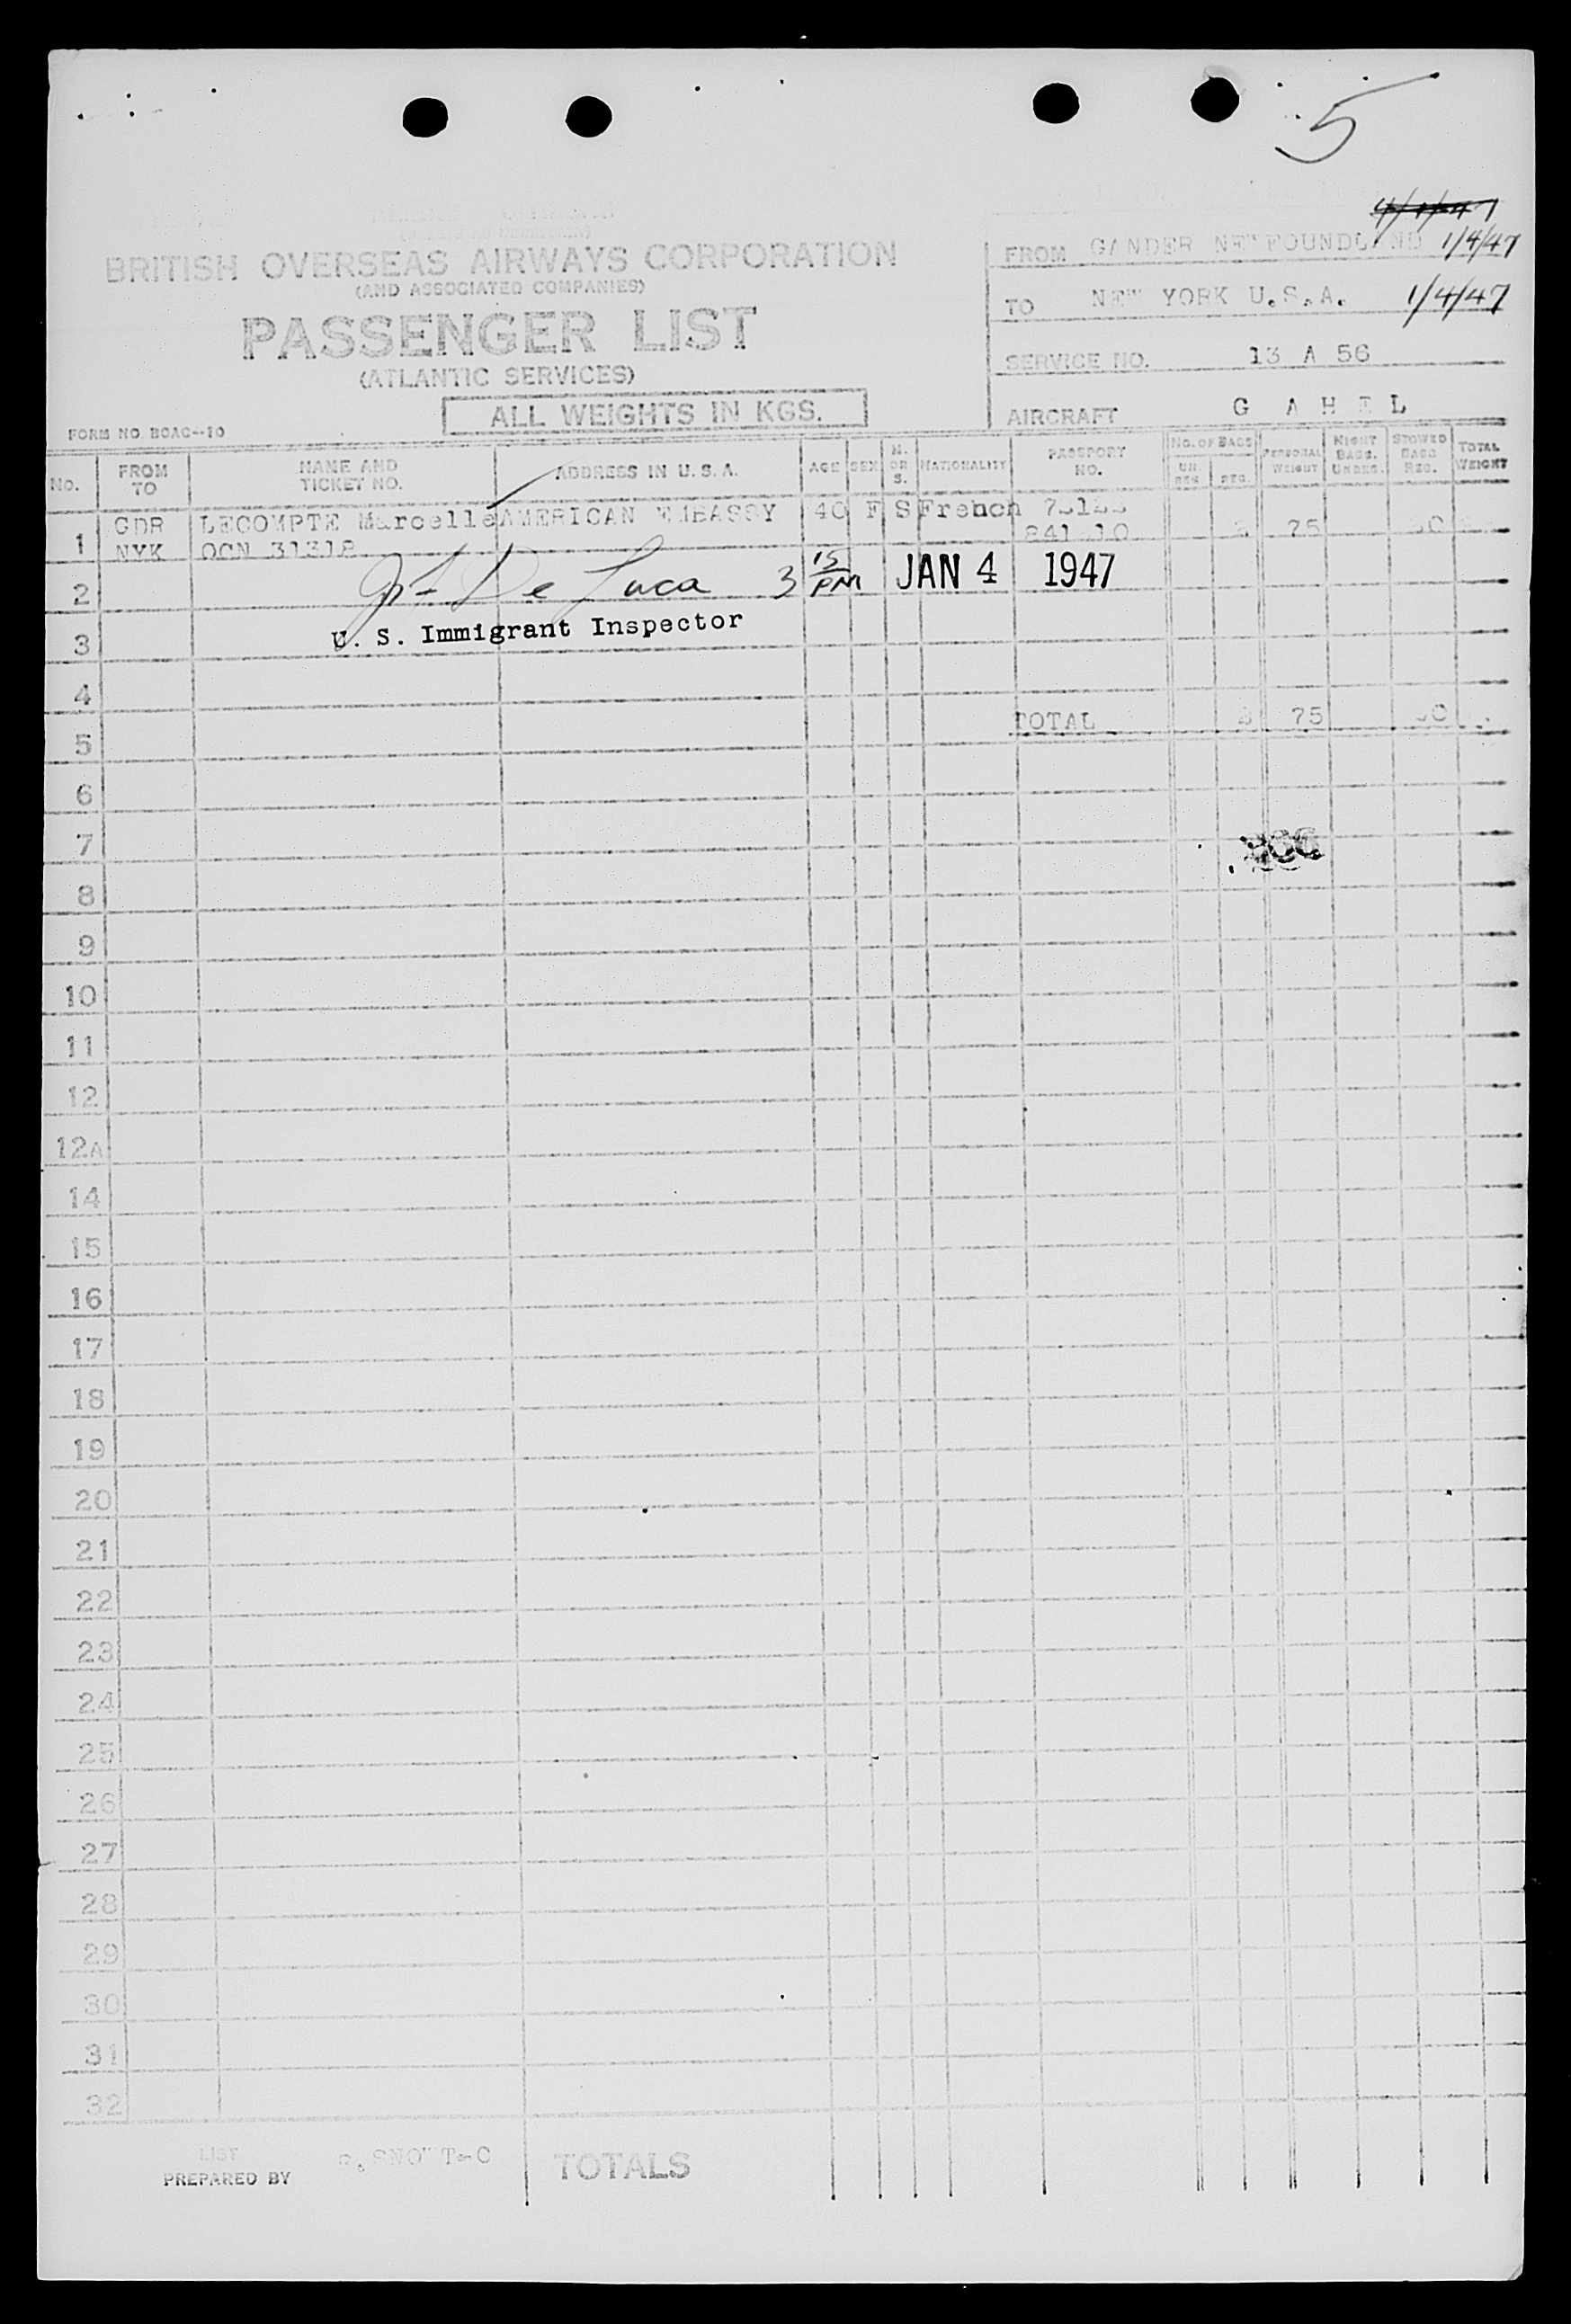 5
4/1/47
BRITISH OVERSEAS AIRWAYS CORPORATION
(AND ASSOCIATED COMPANIES)
PASSENGER LIST
(ATLANTIC SERVICES)
ALL WEIGHTS IN KGS.
FORM NO BOAC--10
FROM GANDER NEWFOUNDLAND 1/4/47
TO NEW YORK U.S.A. 1/4/47
SERVICE NO. 13 A 56
AIRCRAFT G A H E L
No. FROM TO NAME AND TICKET NO. ADDRESS IN U.S.A. AGE SEX M. OR S. NATIONALITY PASSPORT NO. NO. OF BAGS UN. REG. REG. PERSONAL WEIGHT NIGHT BAGS. UNREG. STOWED BAGS REG. TOTAL WEIGHT
1 GDR LECOMPTE Marcelle AMERICAN EMBASSY 40 F S French
NYK OCN 31318 75
2 De Luca 3 15 PM JAN 4 1947
3 U. S. Immigrant Inspector
4
TOTAL 75
5
6
7
8
9
10
11
12
12A
14
15
16
17
18
19
20
21
22
23
24
25
26
27
28
29
30
31
32
LIST
PREPARED BY
TOTALS